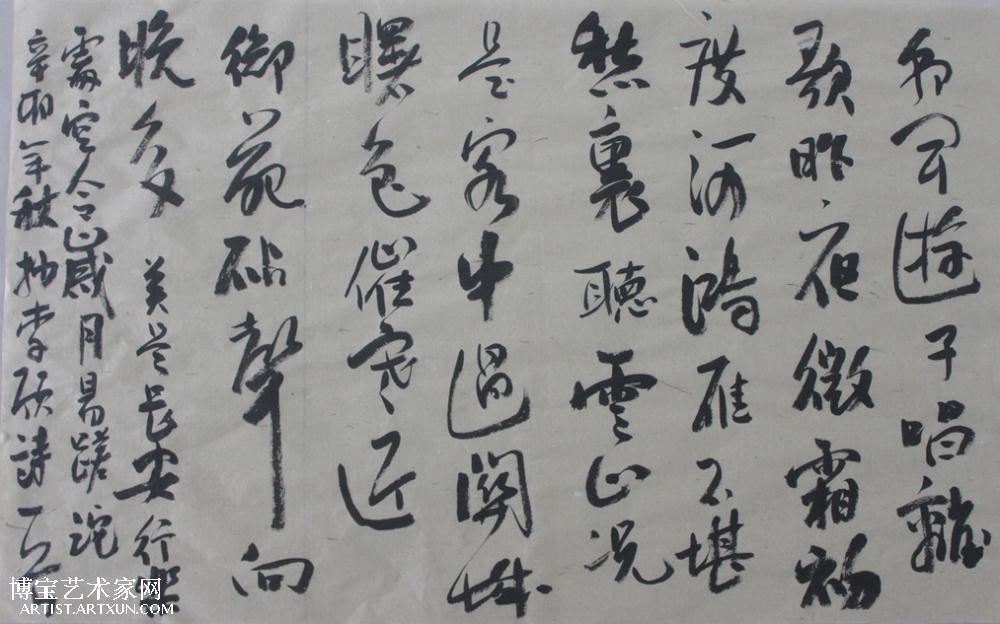 朝闻遊子唱離
歌昨夜微霜初
渡河鴻雁不堪
愁裏聽雲山况
是客中過關城
曙色催寒近
御苑砧聲向
晚多 莫是長安行樂
處空令歲月易蹉跎
辛卯年秋抄李颀詩一首
博宝艺术家网
ARTIST.ARTXUN.COM